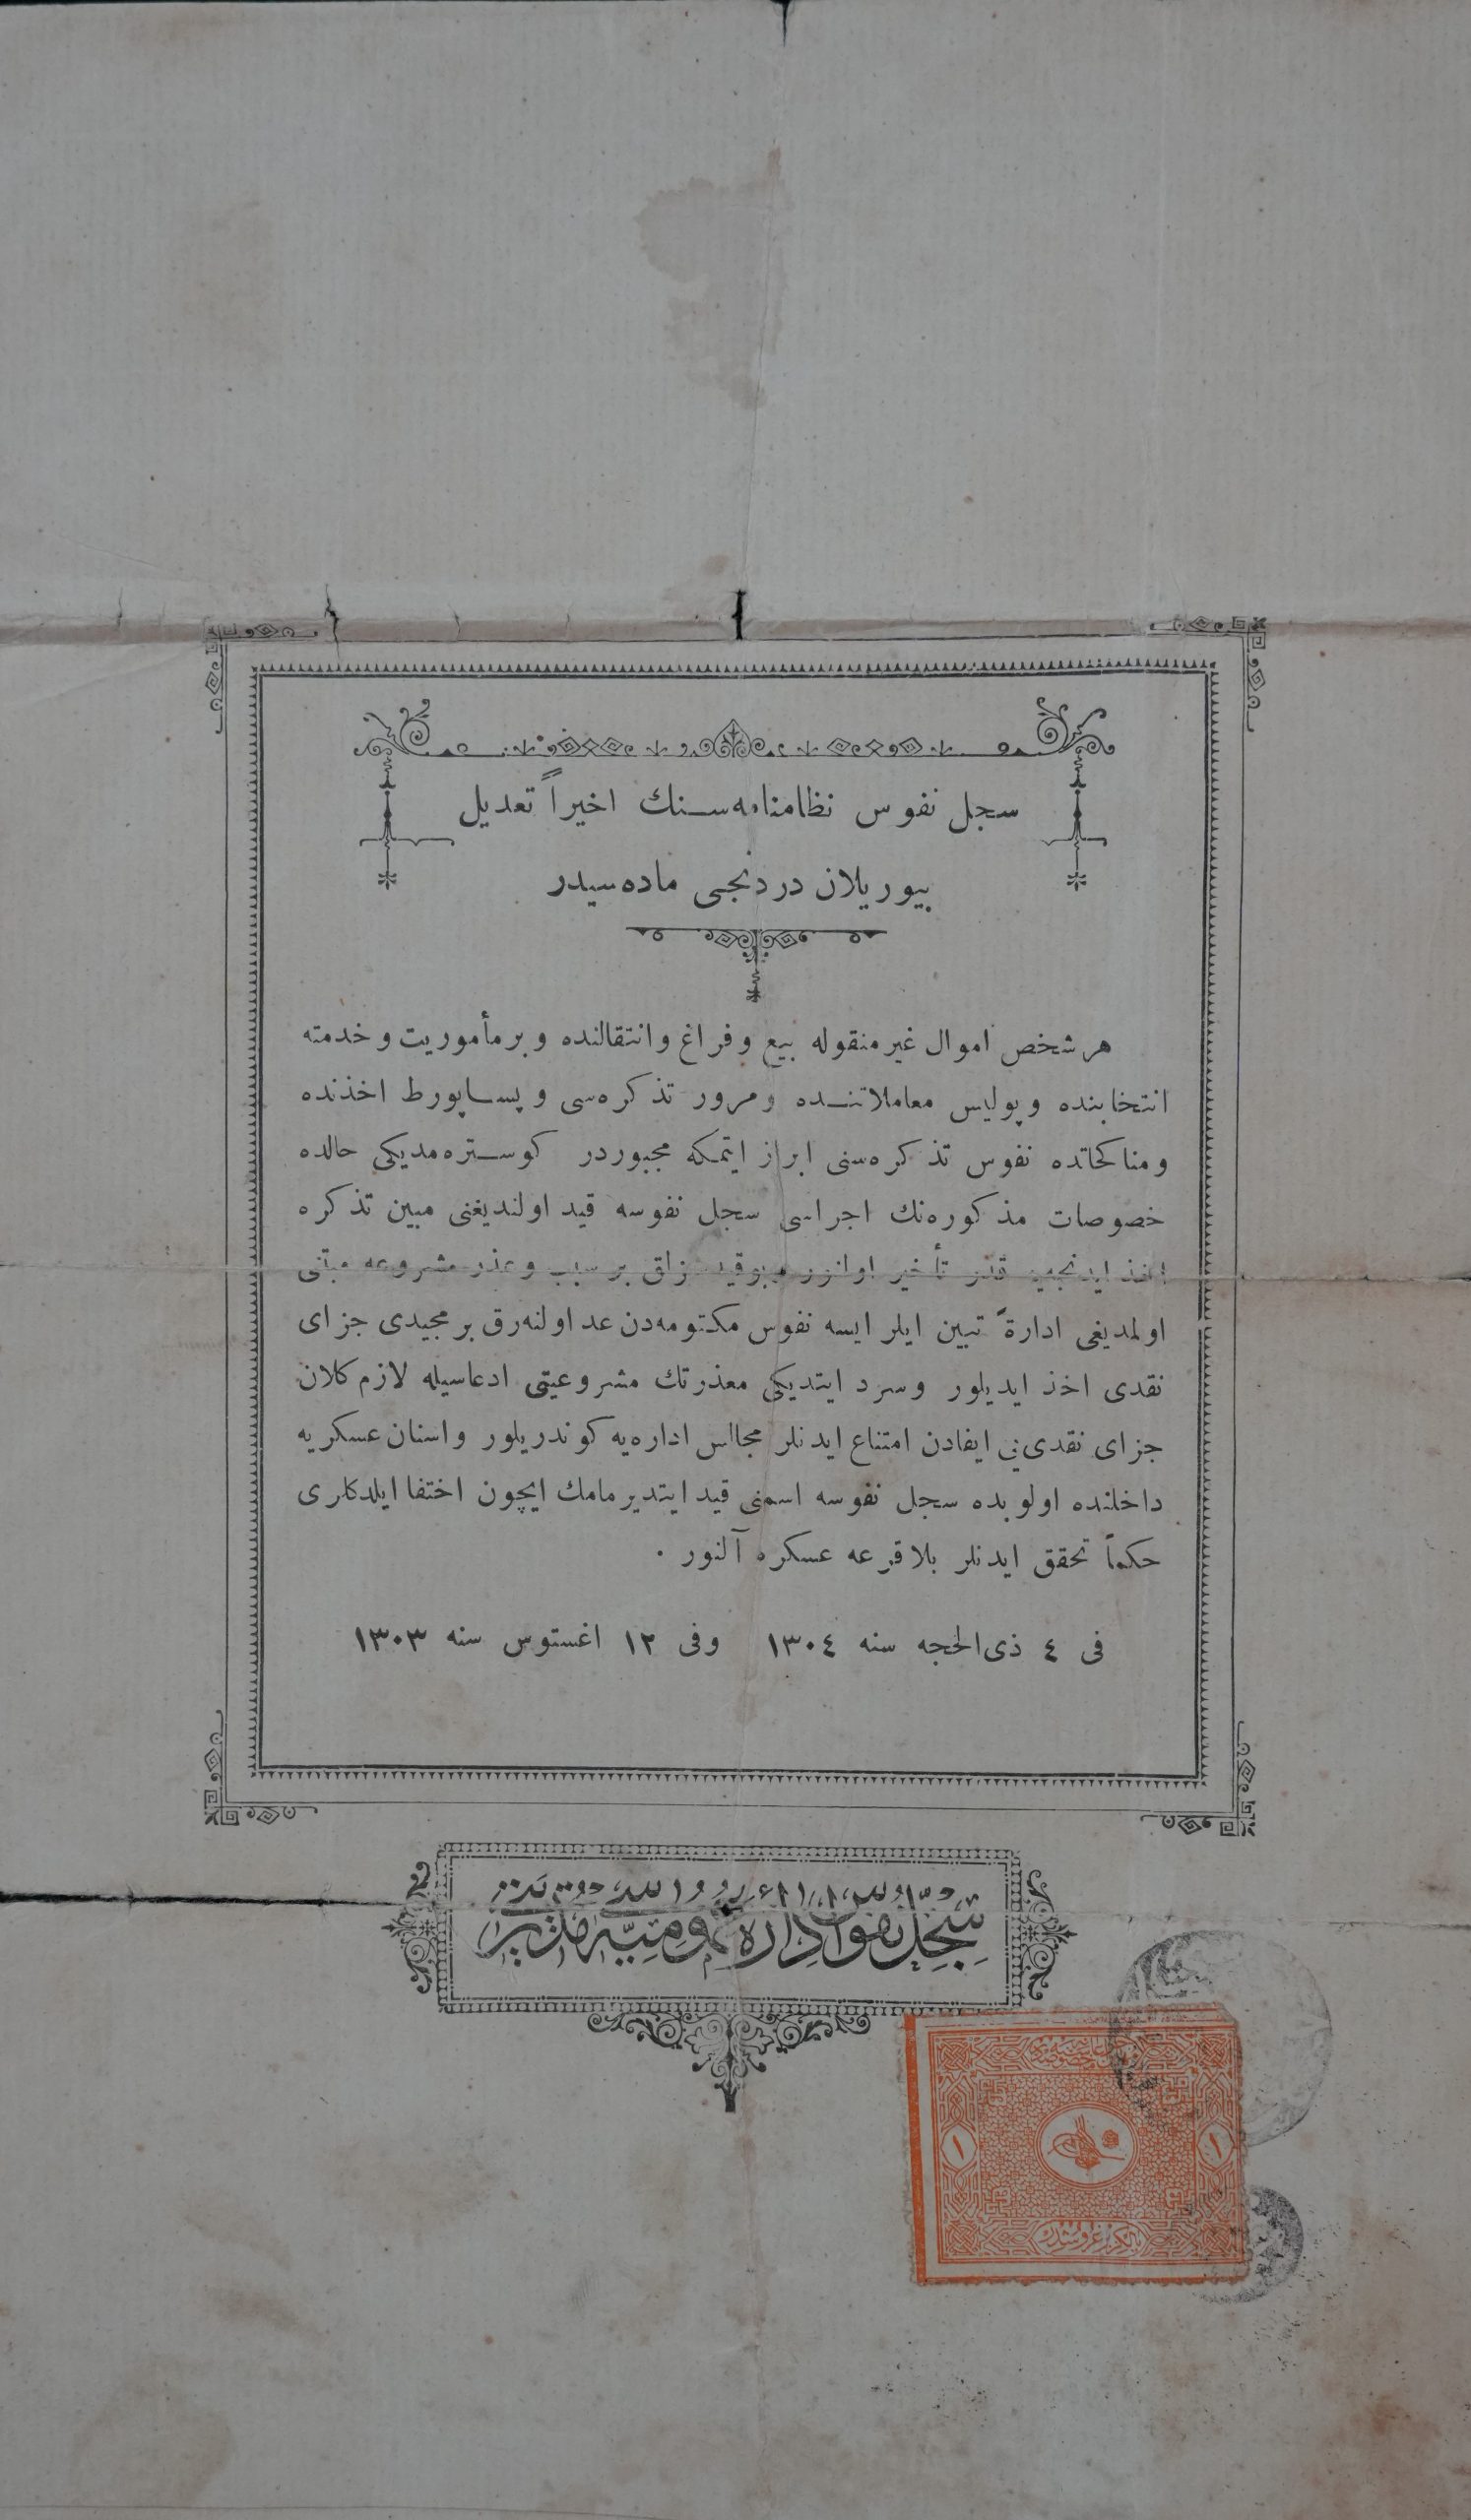 سجل نفوس نظامنامه‌سنك اخیراً تعدیل
بیوریلان دردنجی ماده‌سیدر
هر شخص اموال غیر منقوله بیع و فراغ و انتقالنده و بر مأموریت و خدمته
انتخابنده و پولیس معاملاتنده و مرور تذکره‌سی و پساپورط اخذنده
و مناکحاتده نفوس تذکره‌سنی ابراز ایتمکه مجبوردر کوستره‌مدیکی حالده
خصوصات مذکوره‌نك اجراسی سجل نفوسه قید اولندیغنی مبین تذکره
اخذ ایدنجیه قدر تأخیر اولنور بر سبب و عذر مشروعه مبتنی
اولمدیغی ادارةً تبین ایلر ایسه نفوس مکتومه‌دن عد اولنه‌رق بر مجیدی جزای
نقدی اخذ ایدیلور و سرد ایتدیکی معذرتك مشروعیتی ادعاسیله لازم کلان
جزای نقدی‌یی ایفادن امتناع ایدنلر مجالس اداره‌یه کوندریلور و اسنان عسکریه
داخلنده اولوبده سجل نفوسه اسمنی قید ایتدیرمامك ایچون اختفا ایلدکلری
حکماً تحقق ایدنلر بلا قرعه عسکره آلنور .
فی ٤ ذی‌الحجه سنه ١٣٠٤ وفی ١٢ اغستوس سنه ١٣٠٣
سجل نفوس اداره عمومیه
١ ١